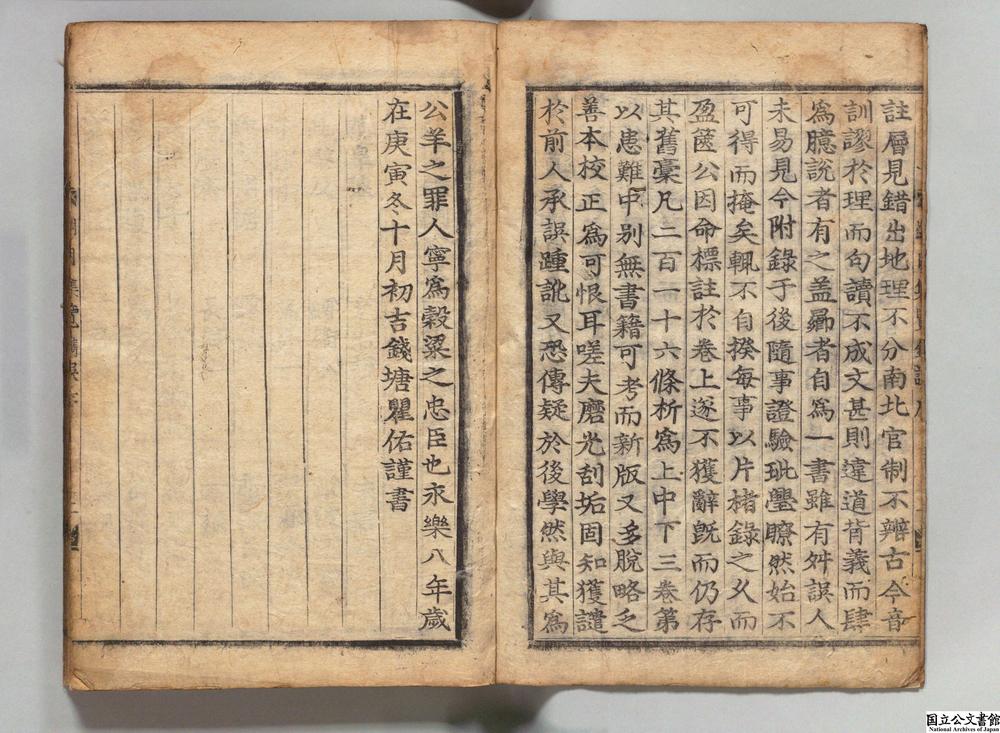 註層見錯出地理不分南北官制不辨古今音
訓謬於理而句讀不成文甚則違道背義而肆
爲臆說者有之盖曏者自爲一書雖有舛誤人
未易見今附錄于後隨事證驗玼璺瞭然始不
可得而掩矣輒不自揆每事以片楮錄之久而
盈篋公因命標註於卷上遂不獲辭旣而仍存
其舊稾凡二百一十六條析爲上中下三卷第
以患難中別無書籍可考而新版又多脫略乏
善本校正爲可恨耳嗟夫磨光刮垢固知獲譴
於前人承誤踵訛又恐傳疑於後學然與其爲
公羊之罪人寧爲穀粱之忠臣也永樂八年歲
在庚寅冬十月初吉錢塘瞿佑謹書
国立公文書館
National Archives of Japan